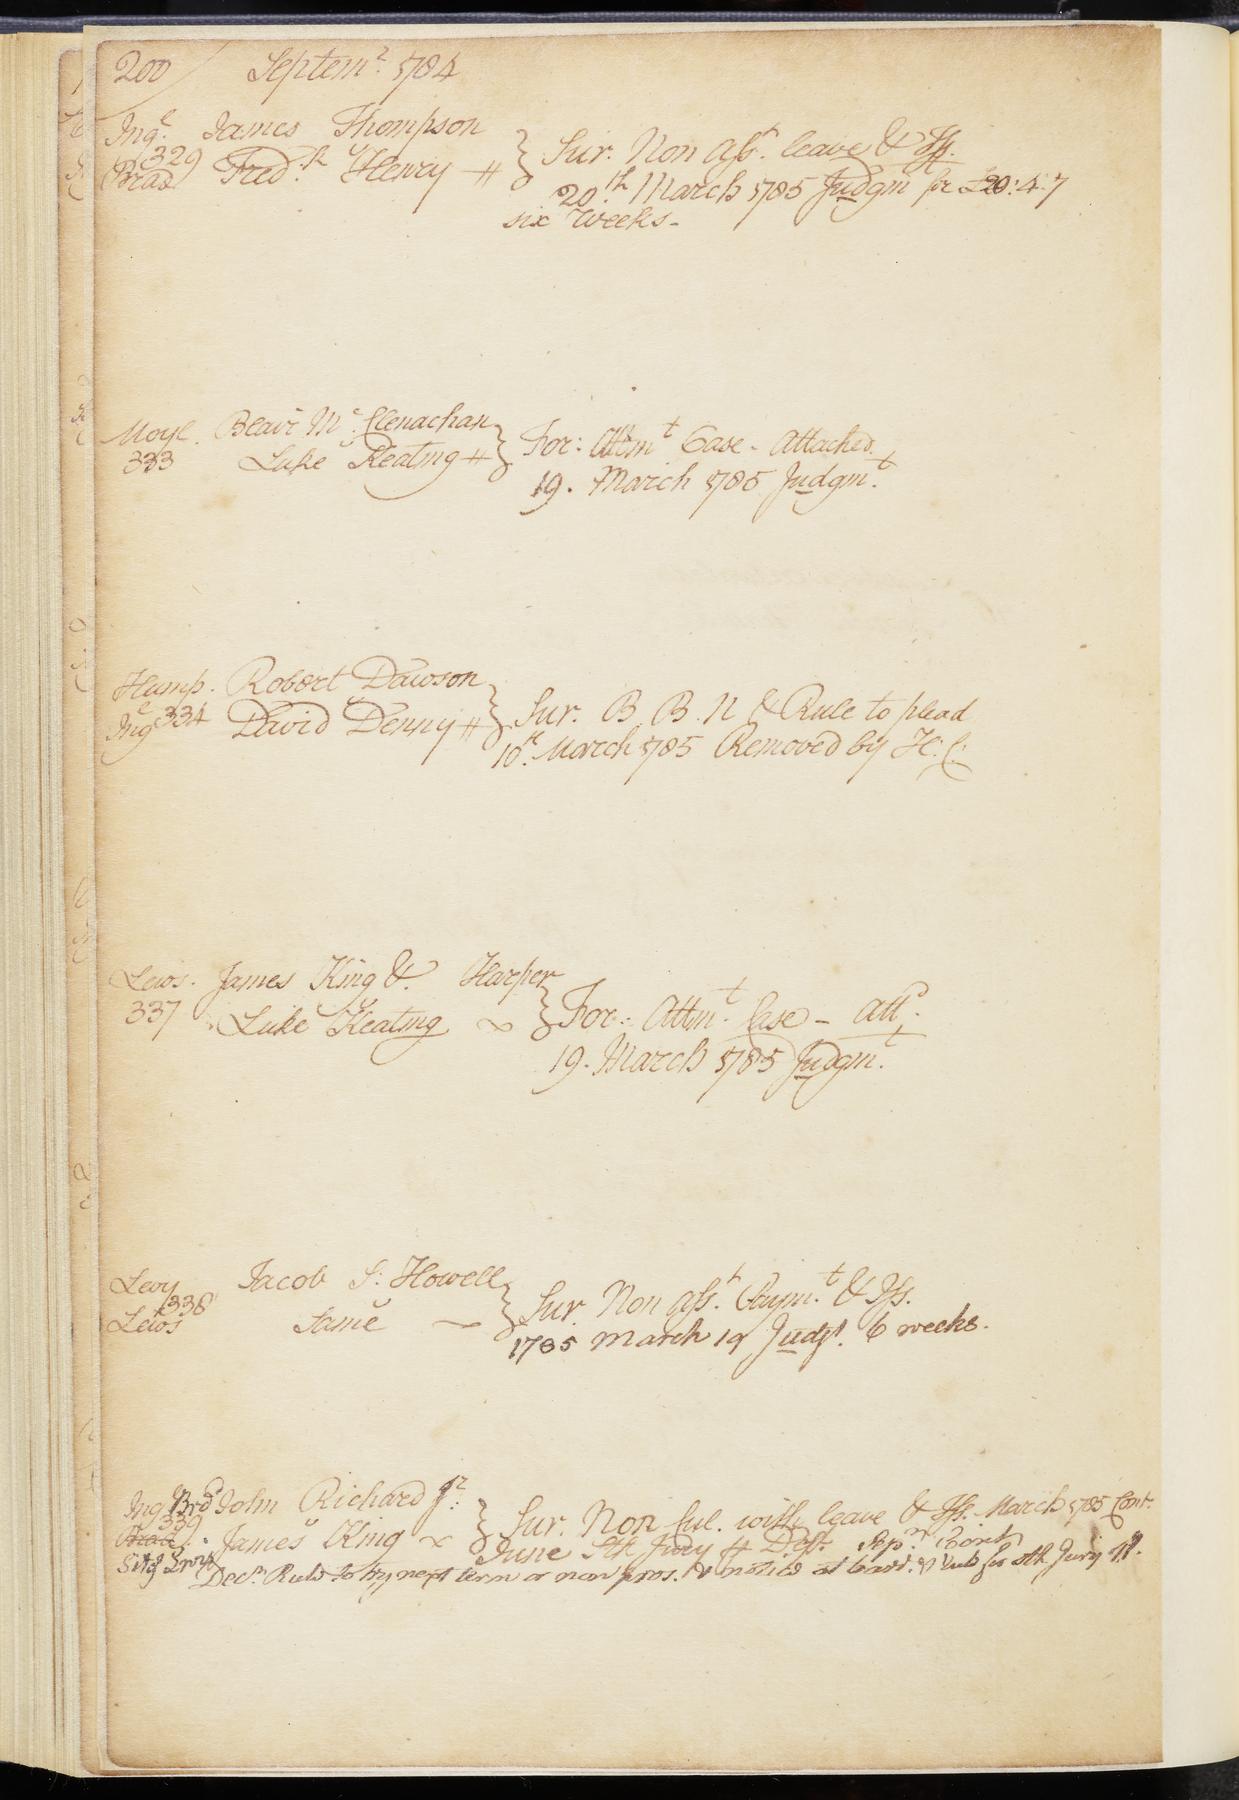 200 Septemr. 1784
Ingl. James Thompson
329
Brad Fredk. Henry
Sur. Non asst. leave & Iss.
20th. March 1785 Judgm for £20:4:7
six Weeks -
Moyl. Blair Mc. Clenachan
333 Luke Keating
For: Attmt Case - Attached.
19. March 1785 Judgmt.
Hump. Robert Dawson
Ingl 334 David Denny
Sur. B. B. N & Rule to plead
10th. March 1785 Removed by H: C:
Lews. James King & Harper
337 Luke Keating
For: Attmt. Case - Attd.
19. March 1785 Judgmt.
Levy Jacob S: Howell
338
Lews Same
Sur. Non asst. Paymt. & Iss.
1785 March 19 Judgt. 6 weeks.
Ing Brd John Richard Jr.
339
James King
Sur. Non cul. with leave & Iss. March 1785 Cont.
June Stk Jury Deft. Sepr. Cont
Decr. Rule to try next term or non pros. & notice at bar. & Rule for stk. Jury